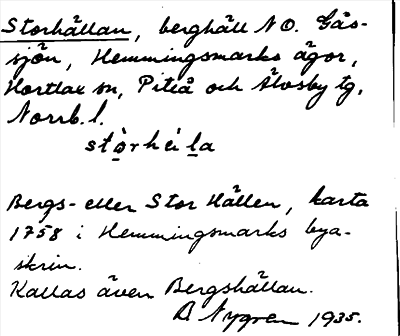 Storhällan, berghäll NO. Gås-
sjön, Hemmingsmarks ägor,
Hortlax sn, Piteå och Älvsby tg,
Norrb. l.
Bergs- eller Stor Hällen, karta
1758 i Hemmingsmarks bya-
skrin.
Kallas även Bergshällan.
B Nygren 1935.